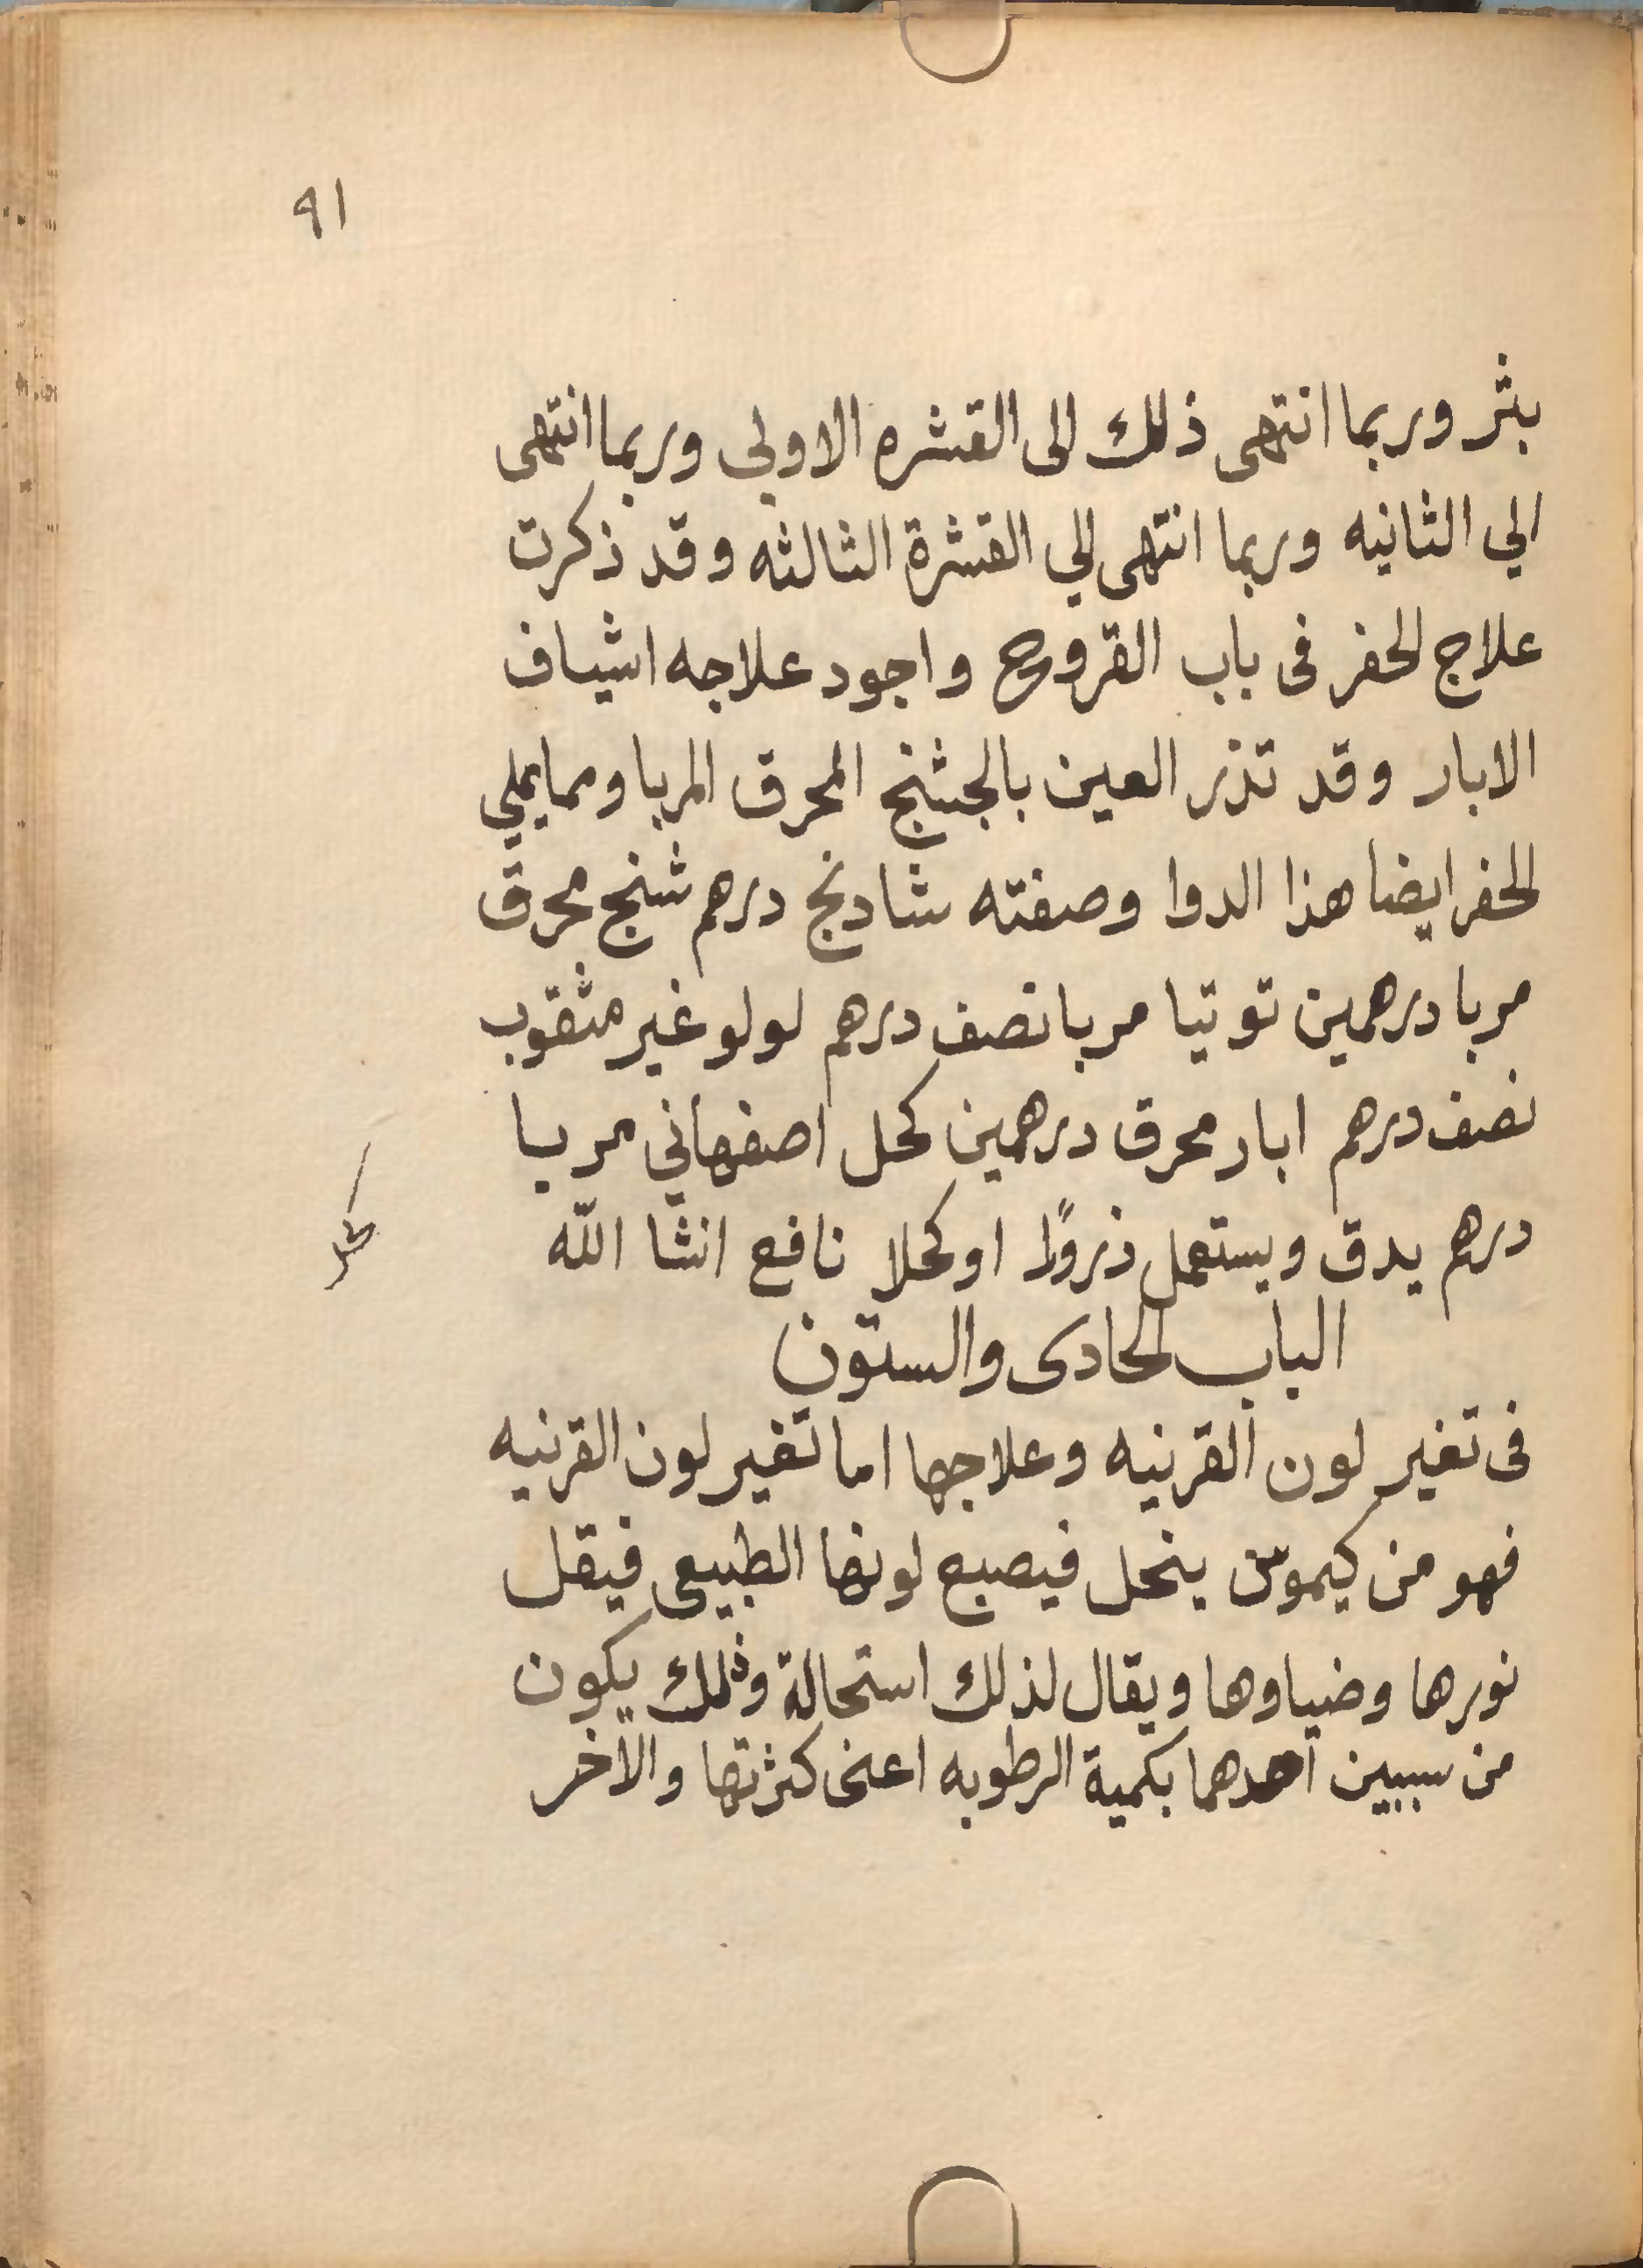 ٩١
بثر وربما انتهى ذلك الى القشره الاولي وربما انتهى
الي الثانيه وربما انتهى الي القشرة الثالثه وقد ذكرت
علاج الحفر فى باب القروح واجود علاجه اشياف
الابار وقد تذر العين بالجشنج المحرق المربا ومما يملي
الحفر ايضا هذا الدوا وصفته شادنج درهم شنج محرق
مربا درهمين توتيا مربا نصف درهم لولو غير مثقوب
نصف درهم ابار محرق درهمين كحل اصفهاني مربا
درهم يدق ويستعمل ذرورًا او كحلا نافع انشا الله
الباب الحادى والستون
فى تغير لون القرنيه وعلاجها اما تغير لون القرنيه
فهو من كيموس ينحل فيصبع لونها الطبيعى فيقل
نورها وضياوها ويقال لذلك استحالة وذلك يكون
من سببين احدهما بكمية الرطوبه اعنى كثرتها والآخر